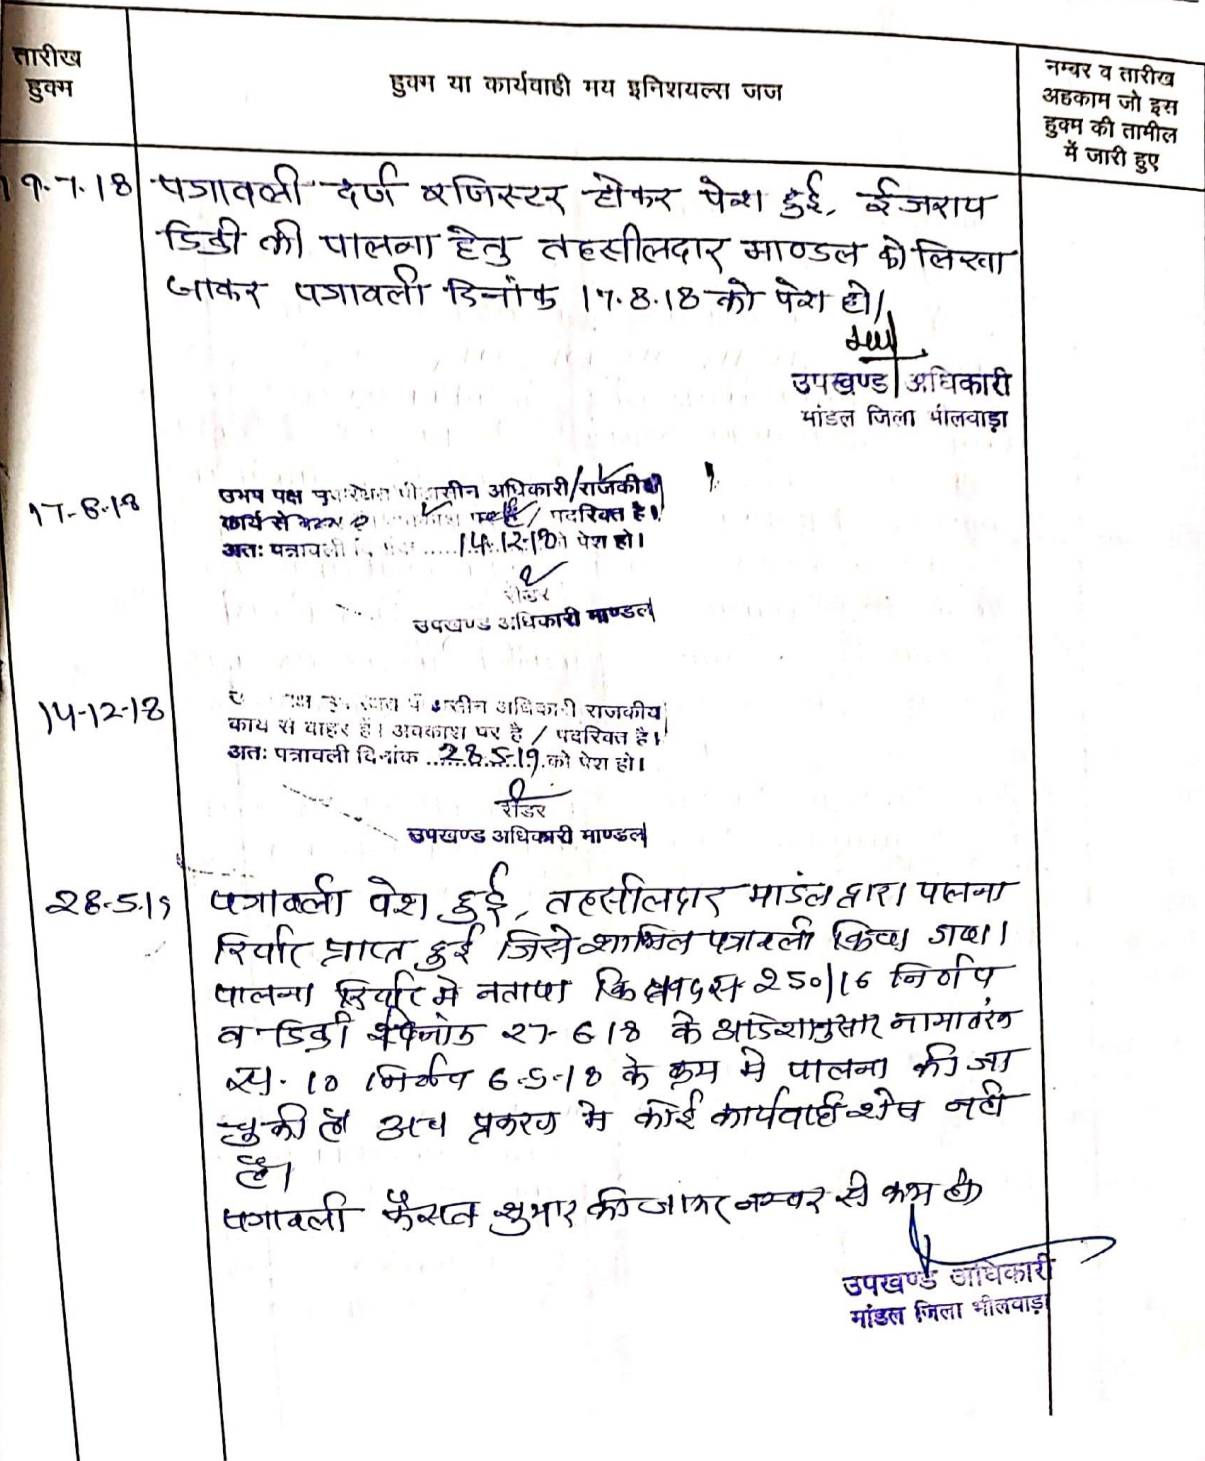 तारीख
हुक्म
हुक्म या कार्यवाही मय इनिशियल्स जज
नम्बर व तारीख
अहकाम जो इस
हुक्म की तामील
में जारी हुए
19-7-18 पत्रावली दर्ज रजिस्टर होकर पेश हुई, ईजराय
डिक्री की पालना हेतु तहसीलदार माण्डल को लिखा
जाकर पत्रावली दिनांक 17.8.18 को पेश हो।
उपखण्ड अधिकारी
मांडल जिला भीलवाड़ा
17-8-18
उभय पक्ष अधिकारी/राजकीय
कार्य से / पदरिक्त है।
अतः पत्रावली 14-12-18 को पेश हो।
रीडर
उपखण्ड अधिकारी माण्डल
14-12-18
अधिकारी राजकीय
कार्य से बाहर है। अवकाश पर है / पदरिक्त है।
अतः पत्रावली दिनांक 28.5.19 को पेश हो।
रीडर
उपखण्ड अधिकारी माण्डल
28-5-19 पत्रावली पेश हुई, तहसीलदार मांडल द्वारा पालना
रिर्पोट प्राप्त हुई जिसे शामिल पत्रावली किया गया।
पालना रिर्पोट मे बताया कि 250/16 निर्णय
व डिक्री दिनांक 27-6-18 के आदेशानुसार नामान्तरण
सं. 10 निर्णय 6-5-18 के क्रम मे पालना की जा
चुकी है अब प्रकरण मे कोई कार्यवाही शेष नही
है।
पत्रावली फैसल शुमार की जाकर नम्बर से कम हो
उपखण्ड अधिकारी
मांडल जिला भीलवाड़ा